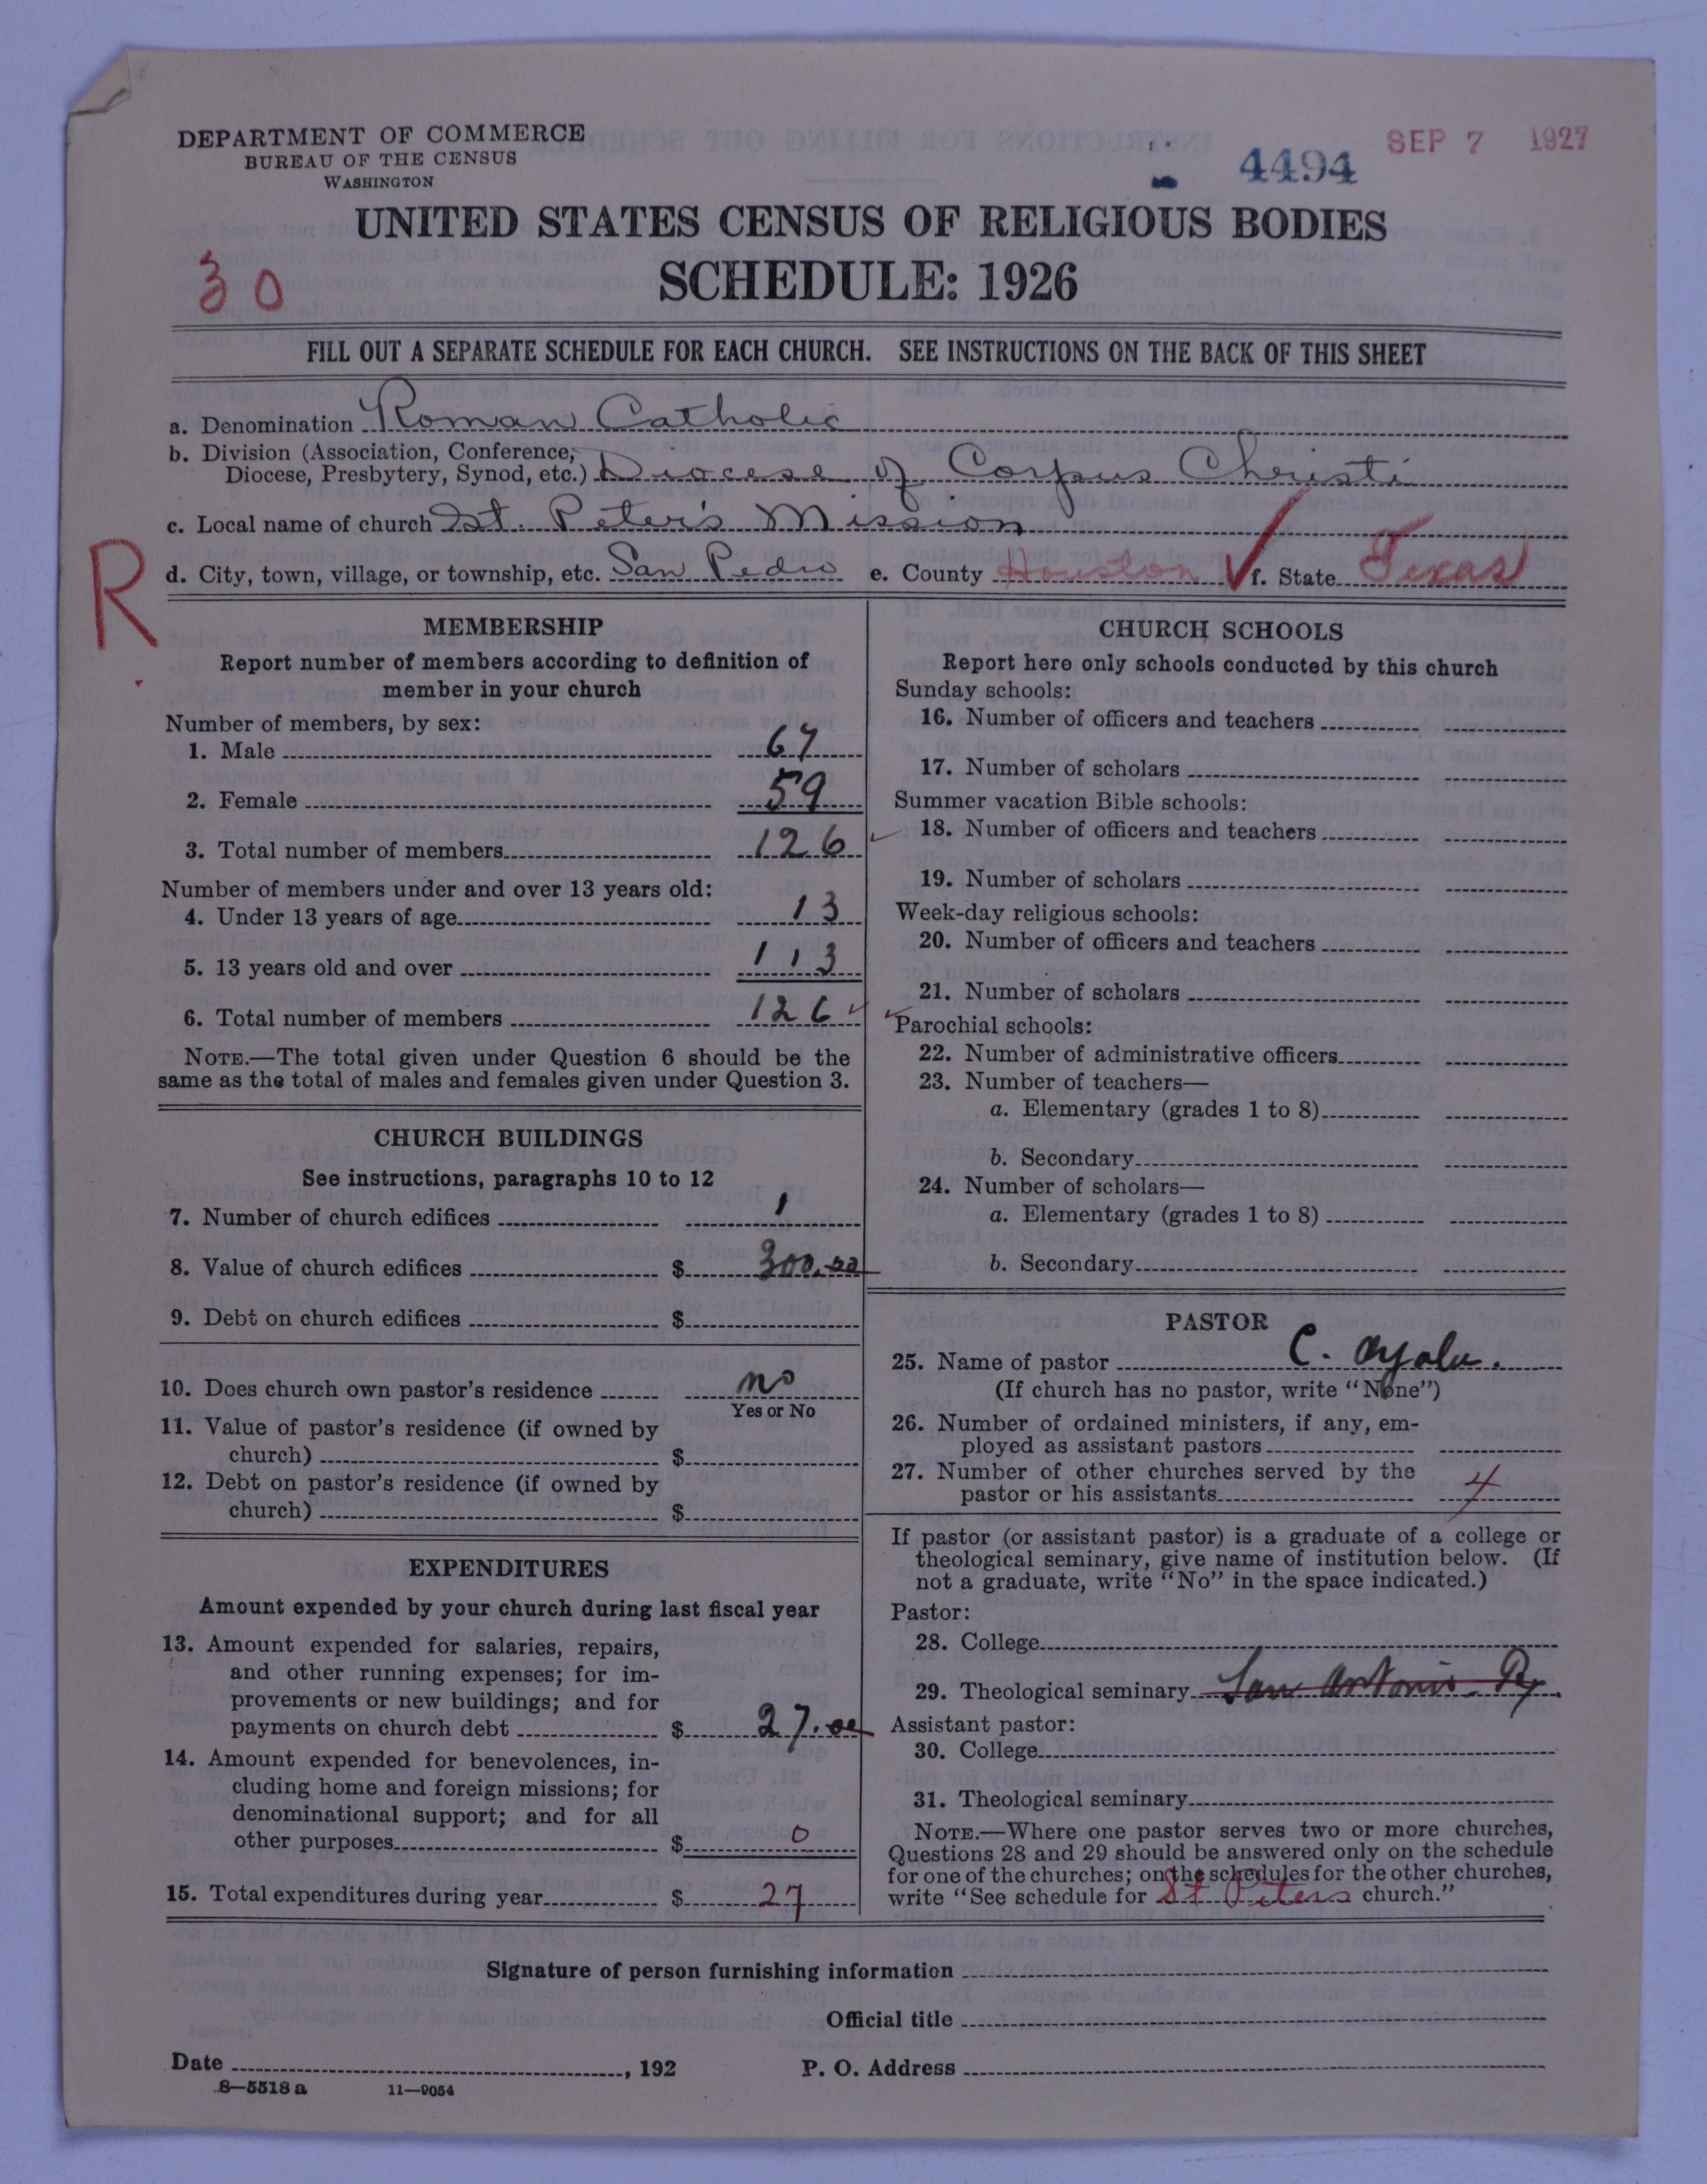 DEPARTMENT OF COMMERCE
BUREAU OF THE CENSUS
WASHINGTON
4494
SEP 7 1927
UNITED STATES CENSUS OF RELIGIOUS BODIES
SCHEDULE: 1926
30
FILL OUT A SEPARATE SCHEDULE FOR EACH CHURCH. SEE INSTRUCTIONS ON THE BACK OF THIS SHEET
a. Denomination Roman Catholic
b. Division (Association, Conference,
Diocese, Presbytery, Synod, etc.) Diocese of Corpus Christi
c. Local name of church St. Peter's Mission
R
d. City, town, village, or township, etc. San Pedro e. County Houston ✓ f. State Texas
MEMBERSHIP
Report number of members according to definition of
member in your church
Number of members, by sex:
1. Male 67
2. Female 59
3. Total number of members 126
Number of members under and over 13 years old:
4. Under 13 years of age 13
5. 13 years old and over 113
6. Total number of members 126
NOTE.—The total given under Question 6 should be the
same as the total of males and females given under Question 3.
CHURCH BUILDINGS
See instructions, paragraphs 10 to 12
7. Number of church edifices 1
8. Value of church edifices $ 300.00
9. Debt on church edifices $
10. Does church own pastor's residence no
Yes or No
11. Value of pastor's residence (if owned by
church) $
12. Debt on pastor's residence (if owned by
church) $
EXPENDITURES
Amount expended by your church during last fiscal year
13. Amount expended for salaries, repairs,
and other running expenses; for im-
provements or new buildings; and for
payments on church debt $ 27.00
14. Amount expended for benevolences, in-
cluding home and foreign missions; for
denominational support; and for all
other purposes $ 0
15. Total expenditures during year $ 27
CHURCH SCHOOLS
Report here only schools conducted by this church
Sunday schools:
16. Number of officers and teachers
17. Number of scholars
Summer vacation Bible schools:
18. Number of officers and teachers
19. Number of scholars
Week-day religious schools:
20. Number of officers and teachers
21. Number of scholars
Parochial schools:
22. Number of administrative officers
23. Number of teachers—
a. Elementary (grades 1 to 8)
b. Secondary
24. Number of scholars—
a. Elementary (grades 1 to 8)
b. Secondary
PASTOR
25. Name of pastor C. Ayala.
(If church has no pastor, write "None")
26. Number of ordained ministers, if any, em-
ployed as assistant pastors
27. Number of other churches served by the
pastor or his assistants 4
If pastor (or assistant pastor) is a graduate of a college or
theological seminary, give name of institution below. (If
not a graduate, write "No" in the space indicated.)
Pastor:
28. College
29. Theological seminary San Antonio
Assistant pastor:
30. College
31. Theological seminary
NOTE.—Where one pastor serves two or more churches,
Questions 28 and 29 should be answered only on the schedule
for one of the churches; on the schedules for the other churches,
write "See schedule for St Peters church."
Signature of person furnishing information
Official title
Date , 192 P. O. Address
8—5518 a 11—9054